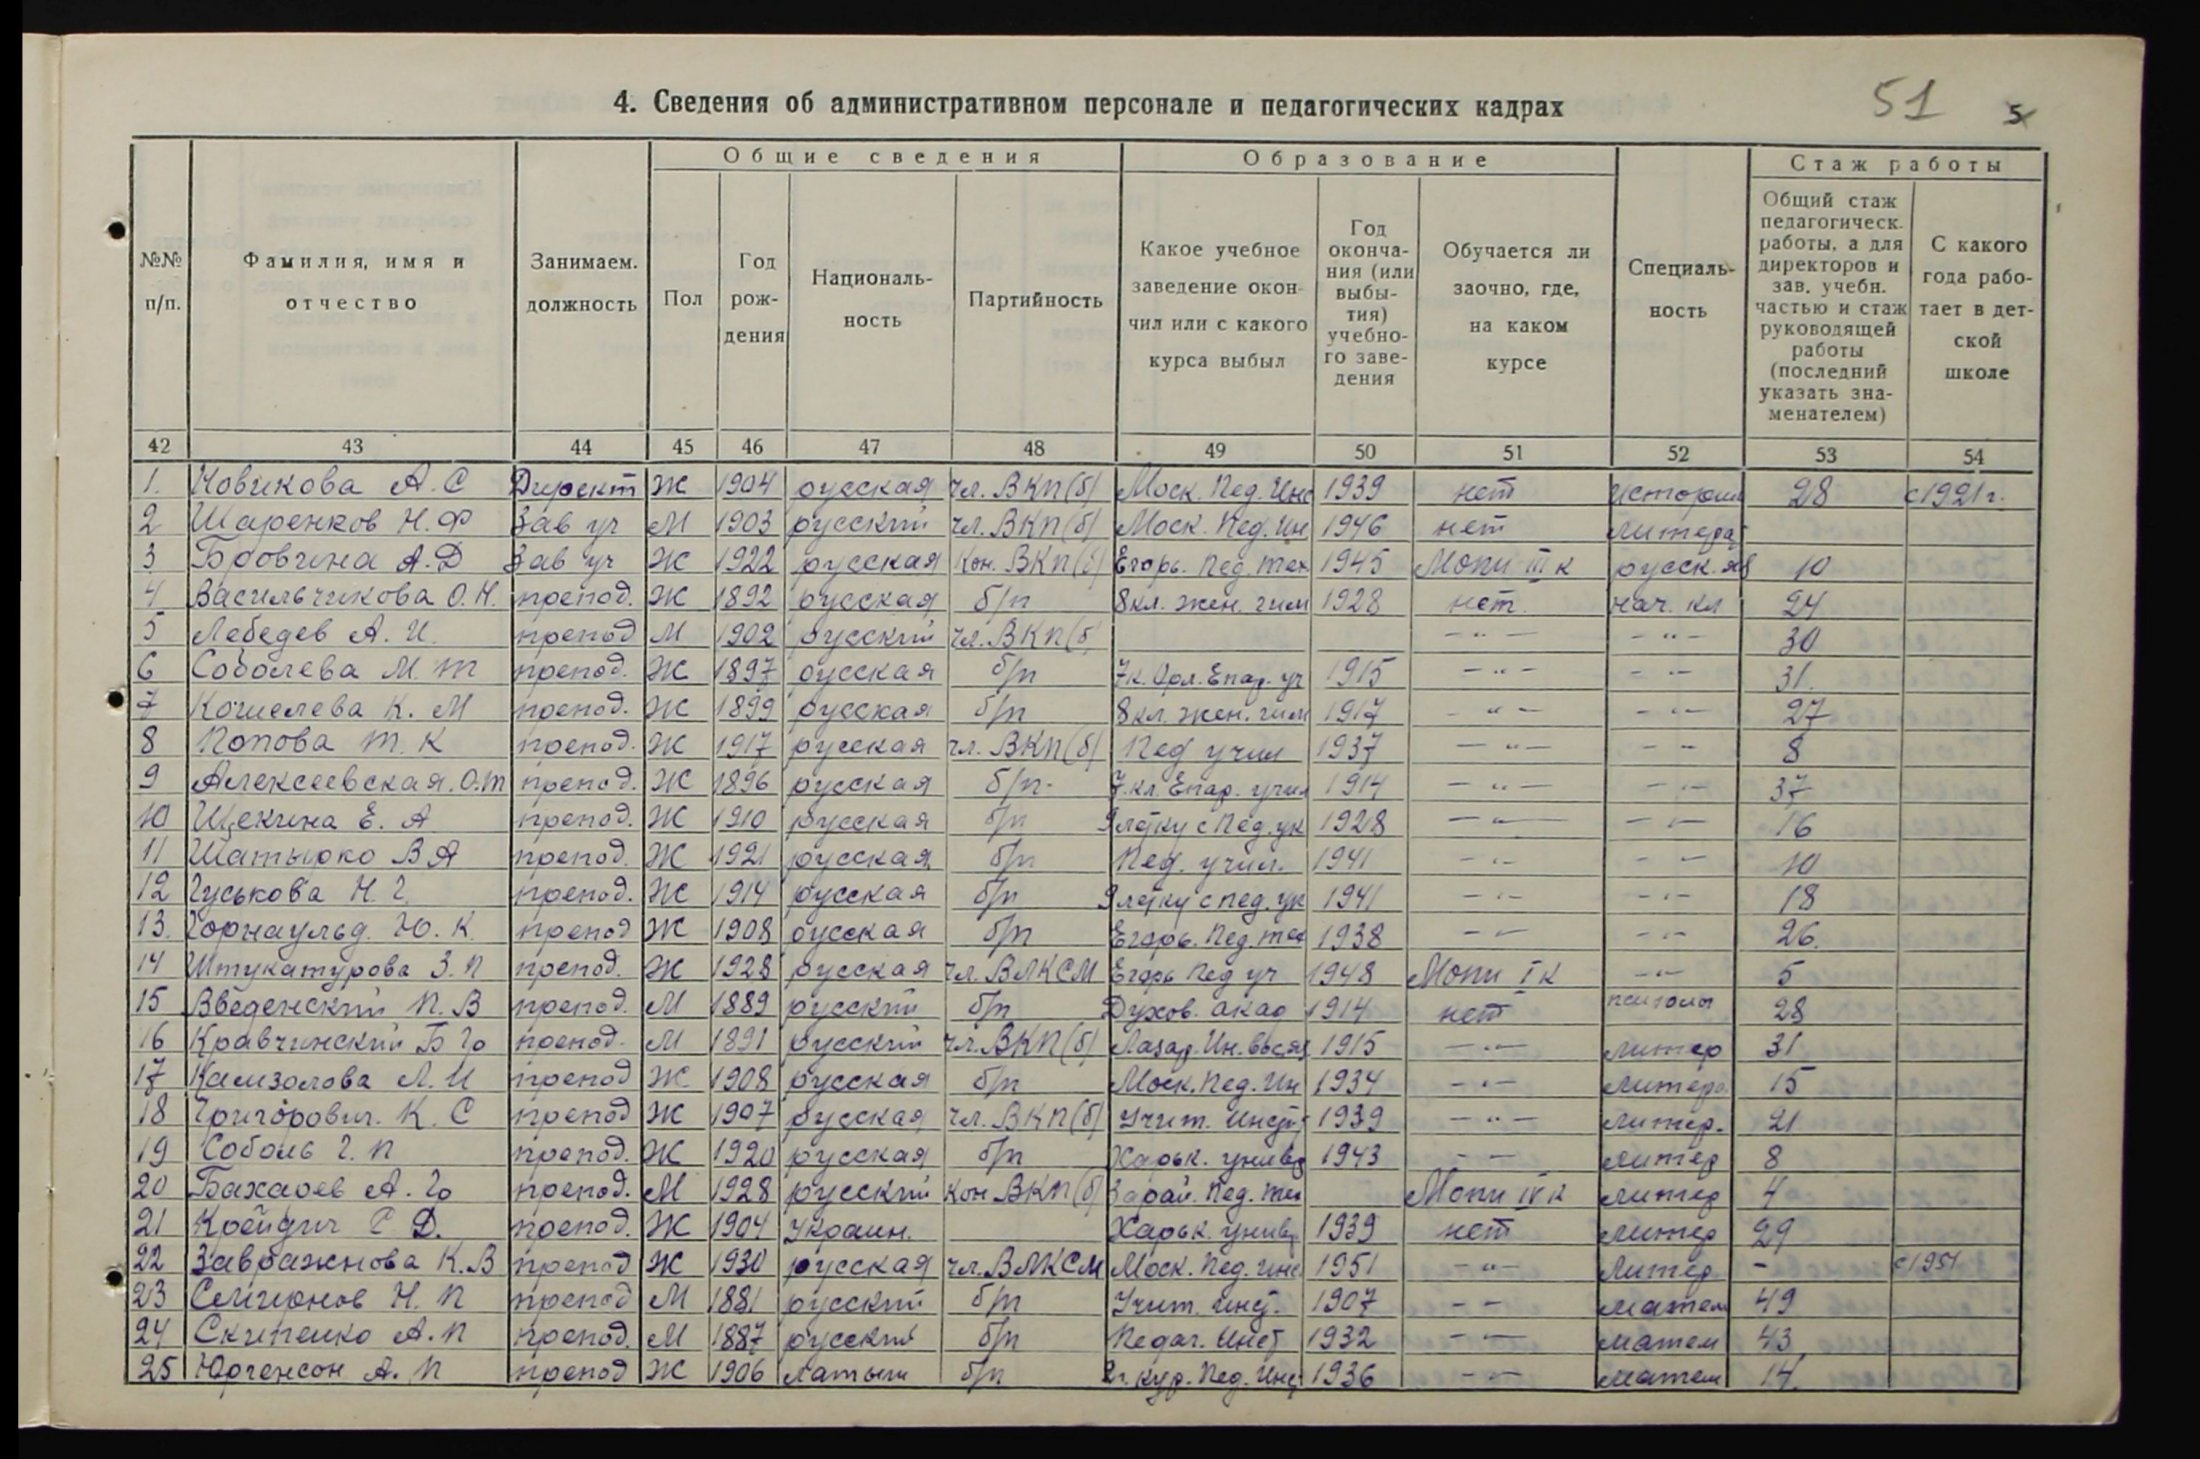 4. Сведения об административном персонале и педагогических кадрах
51 5
№№ п/п.
Фамилия, имя и отчество
Занимаем. должность
Общие сведения
Пол
Год рож-
дения
Националь-
ность
Партийность
Образование
Какое учебное
заведение окон-
чил или с какого
курса выбыл
Год
оконча-
ния (или
выбы-
тия)
учебно-
го заве-
дения
Обучается ли
заочно, где,
на каком
курсе
Специаль-
ность
Стаж работы
Общий стаж
педагогическ.
работы, а для
директоров и
зав. учебн.
частью и стаж
руководящей
работы
(последний
указать зна-
менателем)
С какого
года рабо-
тает в дет-
ской
школе
42 43 44 45 46 47 48 49 50 51 52 53 54
1. Новикова А. С Директ Ж 1904 русская чл. ВКП(б) Моск. Пед. Инс 1939 нет история 28 с 1921 г.
2 Шаренков Н. Ф Зав уч М 1903 русский чл. ВКП(б) Моск. Пед. Ин 1946 нет литерат
3 Бровчина А. Д Зав уч Ж 1922 русская Кон. ВКП(б) Егорь. Пед. тех 1945 Мопи III к русск. яз 10
4 Васильчикова О. Н. препод. Ж 1892 русская б/п 8 кл. жен. гим 1928 нет. нач. кл 24
5 Лебедев А. И. препод М 1902 русский чл. ВКП(б) — " — — " — 30
6 Соболева М. Т препод. Ж 1897 русская б/п 7 к. Орл. Епар. уч 1915 — " — — " — 31.
7 Кошелева К. М препод. Ж 1899 русская б/п 8 кл. жен. гим 1917 — " — — " — 27
8 Попова Т. К препод. Ж 1917 русская чл. ВКП(б) Пед учил 1937 — " — — " — 8
9 Алексеевская. О. Т препод. Ж 1896 русская б/п. 7. кл. Епар. учил 1914 — " — — " — 37
10 Щекина Е. А препод. Ж 1910 русская б/п 9 летку с Пед. ук 1928 — " — — " — 16
11 Шатырко В А препод. Ж 1921 русская б/п Пед. учил. 1941 — " — — " — 10
12 Гуськова Н. Г. препод. Ж 1914 русская б/п 9 летку с пед. ук 1941 — " — — " — 18
13. Горнаульд. Ю. К. препод Ж 1908 русская б/п Егорь. Пед. тех 1938 — " — — " — 26.
14 Штукатурова З. П препод. Ж 1928 русская чл. ВЛКСМ Егорь Пед уч 1948 Мопи I к — " — 5
15 Введенский П. В препод. М 1889 русский б/п Духов. акад 1914 нет психолог 28
16 Кравчинский Б Ю препод. М 1891 русский чл. ВКП(б) Лазар. Ин. 1915 — " — литер 31
17 Камзолова Л. И препод Ж 1908 русская б/п Моск. Пед. Ин 1934 — " — литера 15
18 Григорович. К. С препод Ж 1907 русская чл. ВКП(б) Учит. Инст 1939 — " — литер. 21
19 Соболь Г. П препод. Ж 1920 русская б/п Харьк. универ 1943 — " — литер 8
20 Бахарев А. Ю препод. М 1928 русский Кон ВКП(б) Зарай. Пед. тех Мопи IV к литер 4
21 Крейдич С Д. препод. Ж 1904 Украин. Харьк. универ 1939 нет литер 29
22 Завражнова К. В препод Ж 1930 русская чл. ВЛКСМ Моск. Пед. инс 1951 — " — литер — с 1951
23 Семионов Н. П препод М 1881 русский б/п Учит. инст. 1907 — — матем 49
24 Скипенко А. П препод. М 1887 русский б/п Педаг. Инст 1932 — " — матем 43
25 Юргенсон А. П препод Ж 1906 латыш б/п 2 г. кур. Пед. Инс 1936 — " — матем 14.